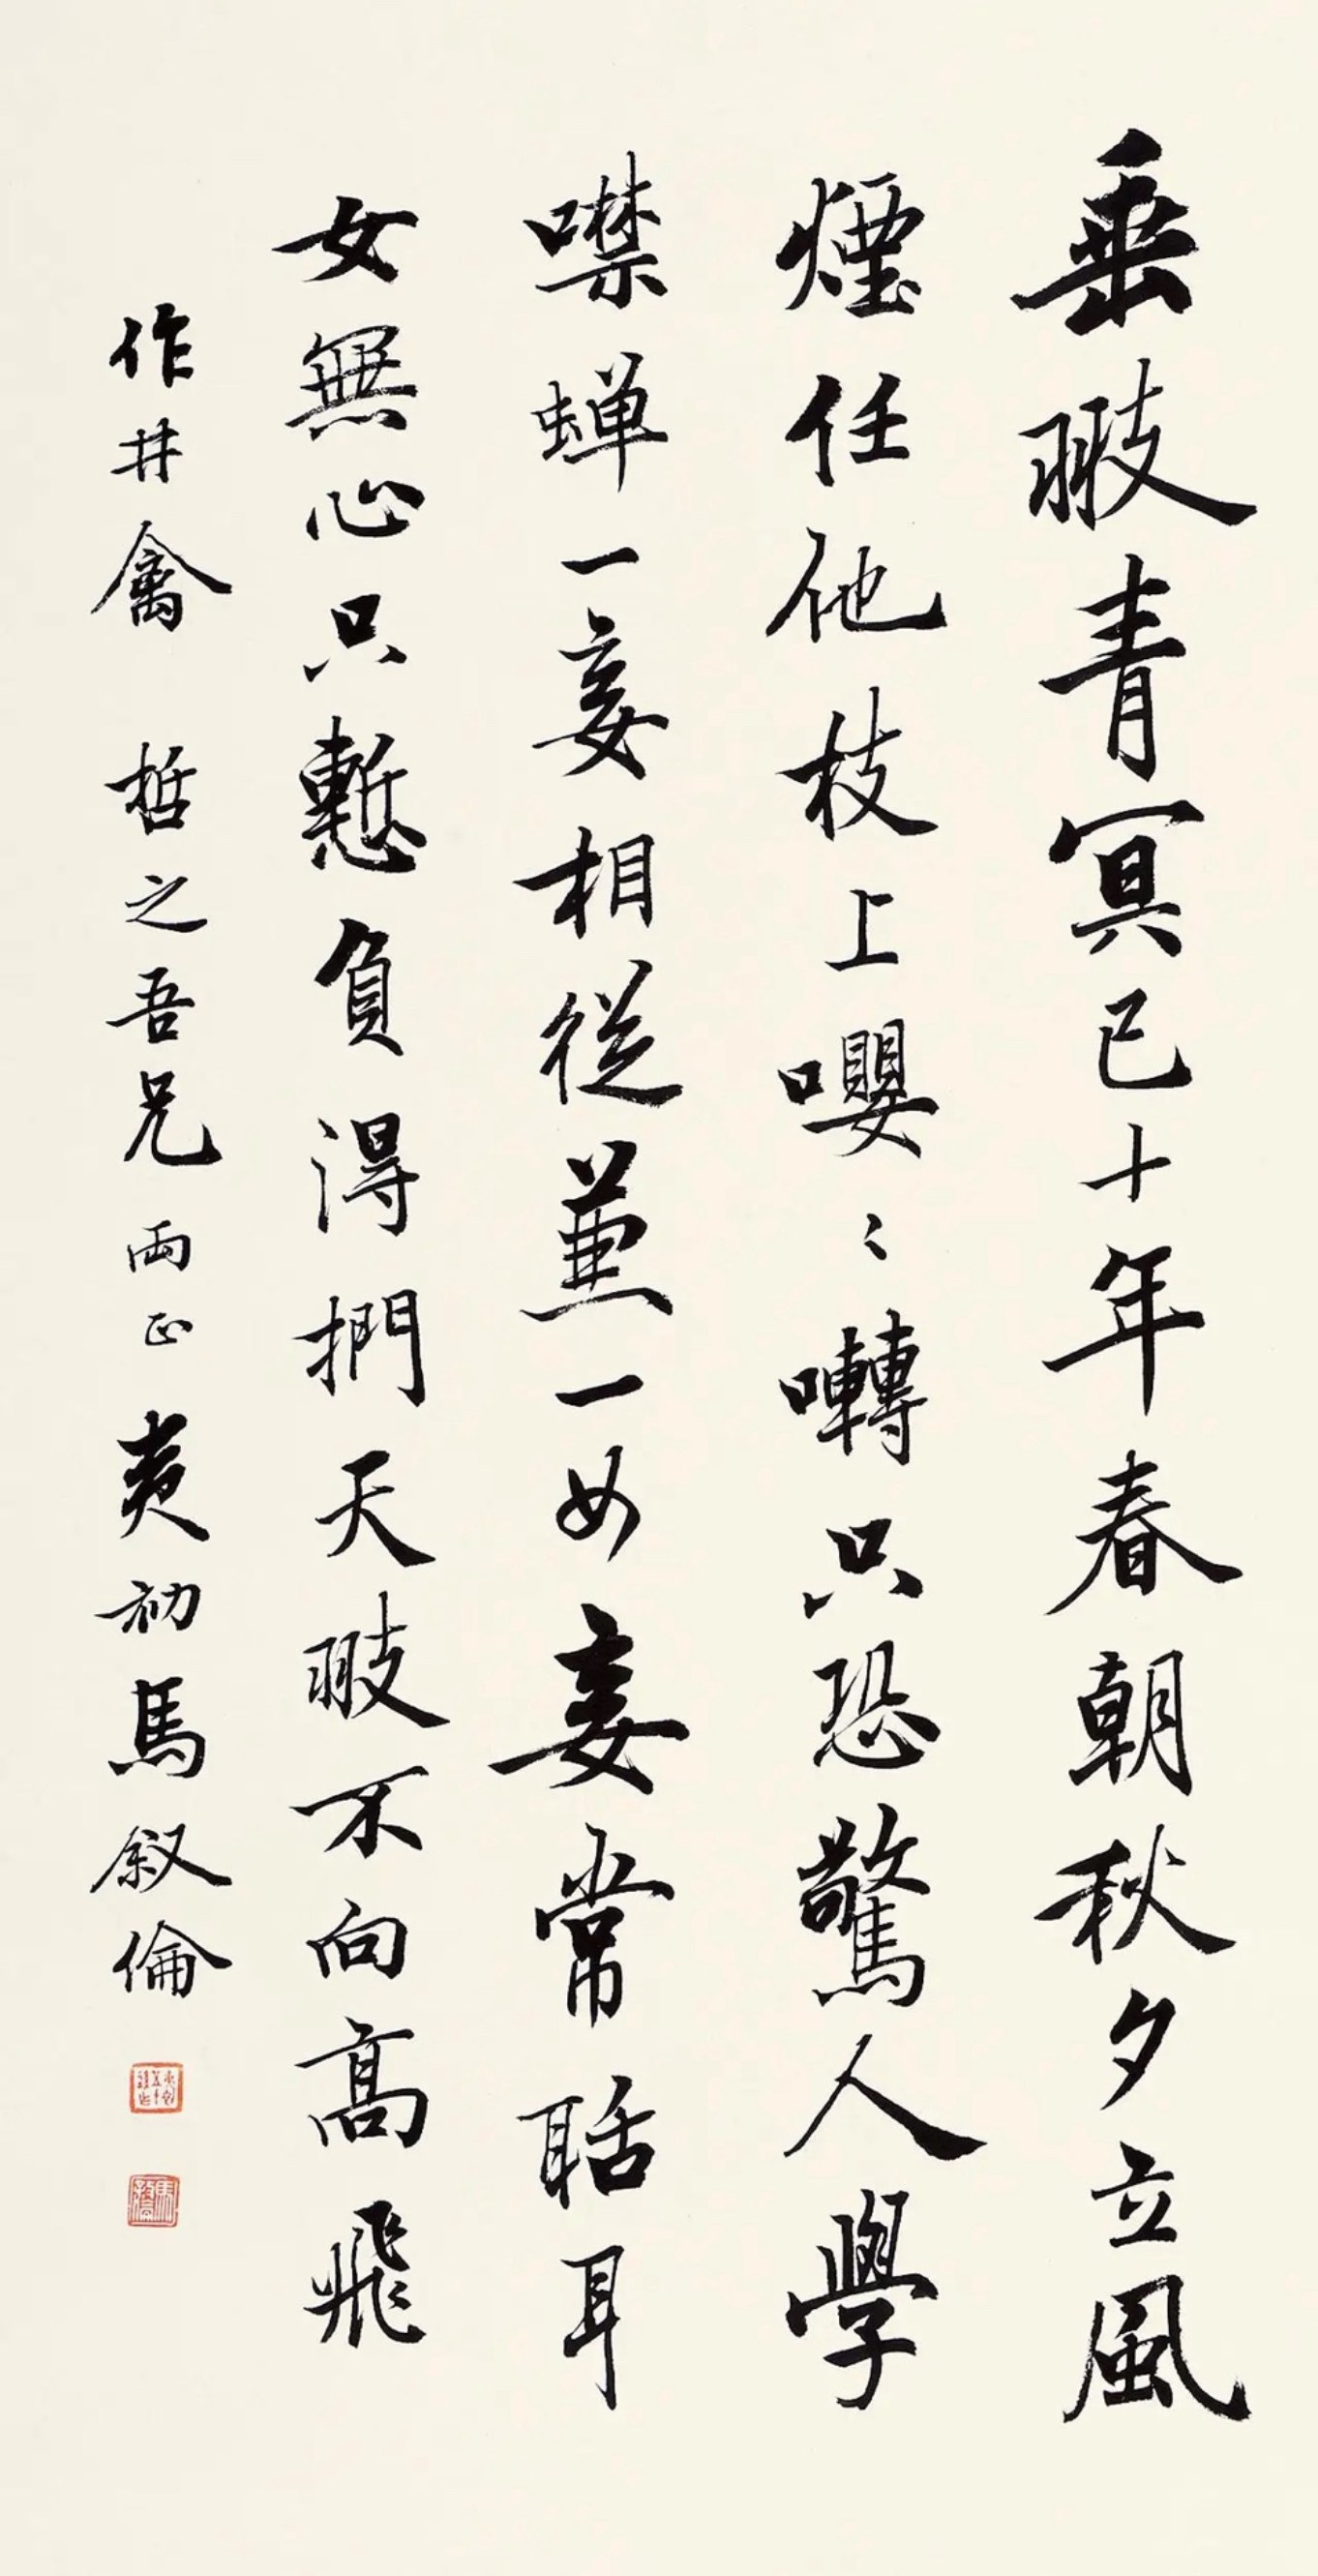 垂翅青冥已十年春朝秋夕立風
煙任他枝上嚶〻囀只恐驚人學
噤蝉一妾相從兼一女妾常聒耳
女無心只慙負得捫天翅不向高飛
作井禽 哲之吾兄兩正 夷初馬叙倫